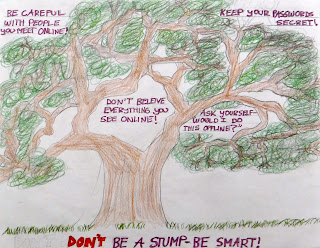 BE CAREFUL
WITH PEOPLE
YOU MEET ONLINE!
KEEP YOUR PASSWORDS
SECRET!
DON'T BELEVE
EVERYTHING YOU
SEE ONLINE!
ASK YOURSELF-
WOULD I DO
THIS OFFLINE?"
DON'T BE A STUMP- BE SMART!